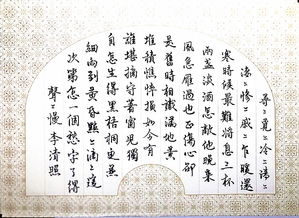 尋〻覓〻冷〻清〻
淒〻慘〻戚〻乍暖還
寒時候最難將息三杯
兩盞淡酒怎敵他晚來
風急雁過也正傷心卻
是舊時相識滿地黃
堆積憔悴損如今有
誰堪摘守著窗兒獨
自怎生得黑梧桐更兼
細雨到黃昏點〻滴〻這
次第怎一個愁字了得
聲〻慢李清照